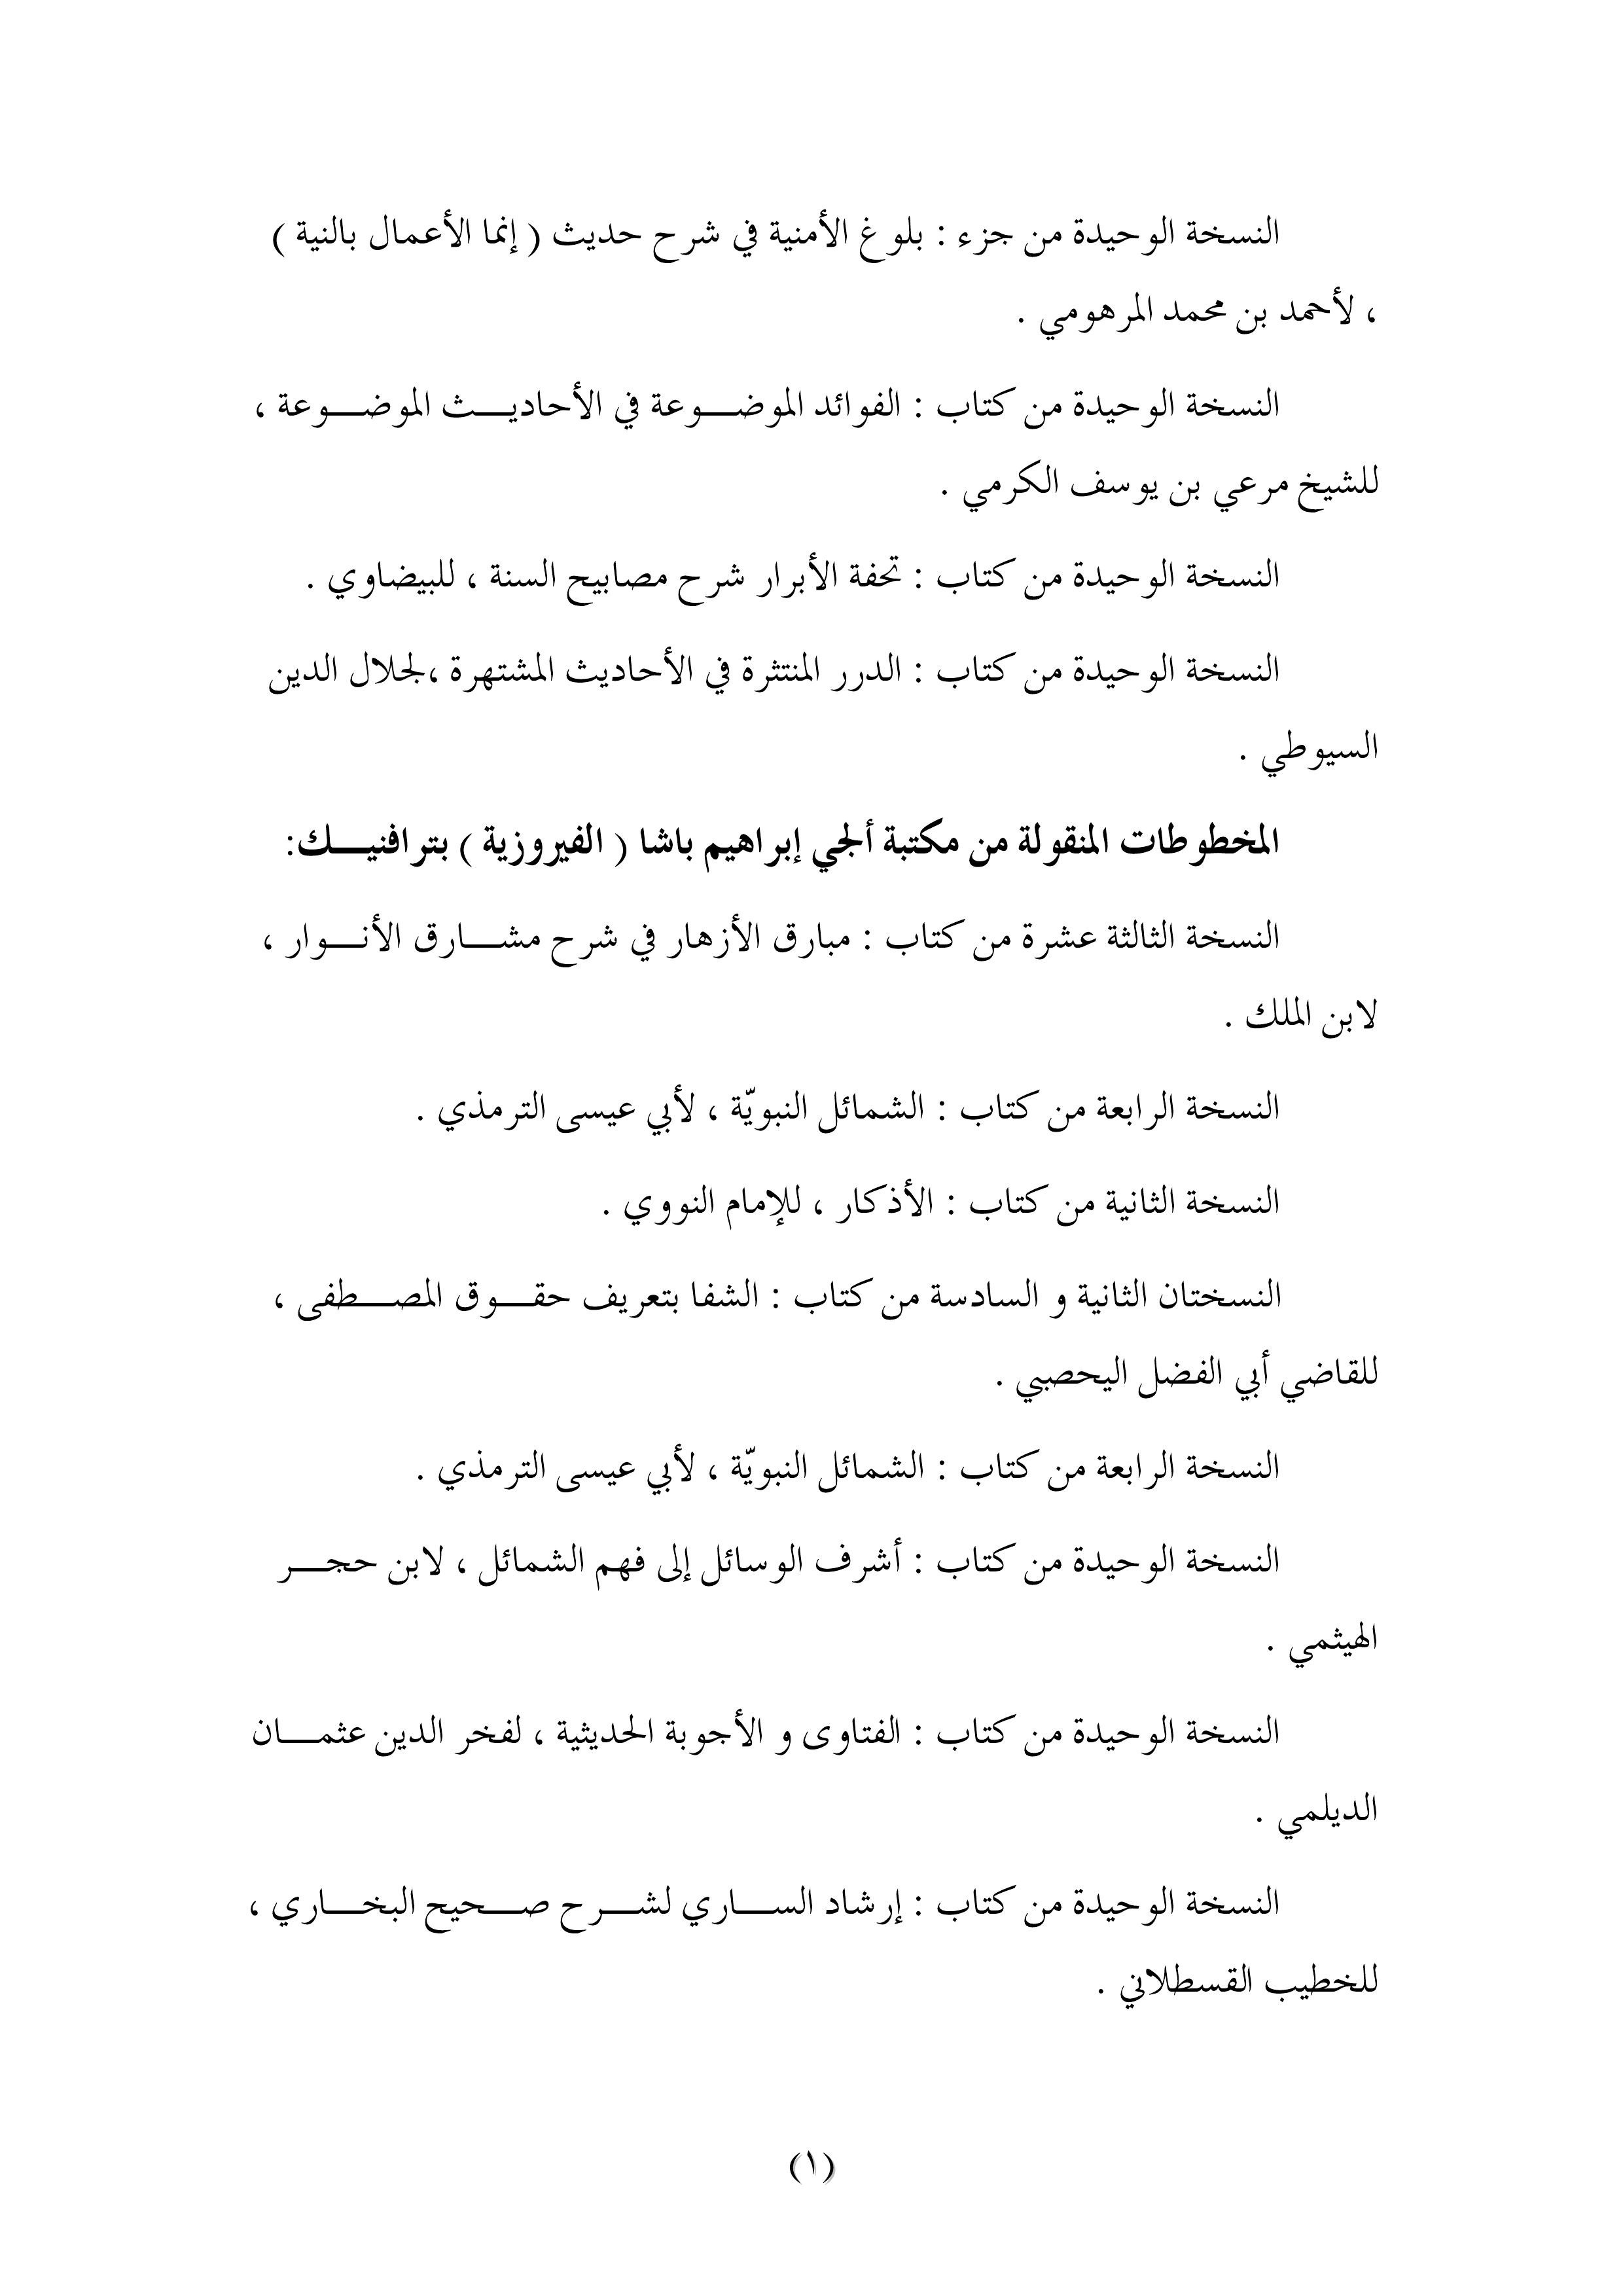 النسخة الوحيدة من جزء : بلوغ الأمنية في شرح حديث ( إنما الأعمال بالنية )
، لأحمد بن محمد المرهومي .
النسخة الوحيدة من كتاب : الفوائد الموضوعة في الأحاديث الموضوعة ،
للشيخ مرعي بن يوسف الكرمي .
النسخة الوحيدة من كتاب : تحفة الأبرار شرح مصابيح السنة ، للبيضاوي .
النسخة الوحيدة من كتاب : الدرر المنتثرة في الأحاديث المشتهرة ،لجلال الدين
السيوطي .
المخطوطات المنقولة من مكتبة ألجي إبراهيم باشا ( الفيروزية ) بترافنيك:
النسخة الثالثة عشرة من كتاب : مبارق الأزهار في شرح مشارق الأنوار ،
لابن الملك .
النسخة الرابعة من كتاب : الشمائل النبويّة ، لأبي عيسى الترمذي .
النسخة الثانية من كتاب : الأذكار ، للإمام النووي .
النسختان الثانية و السادسة من كتاب : الشفا بتعريف حقوق المصطفى ،
للقاضي أبي الفضل اليحصبي .
النسخة الرابعة من كتاب : الشمائل النبويّة ، لأبي عيسى الترمذي .
النسخة الوحيدة من كتاب : أشرف الوسائل إلى فهم الشمائل ، لابن حجر
الهيثمي .
النسخة الوحيدة من كتاب : الفتاوى و الأجوبة الحديثية ، لفخر الدين عثمان
الديلمي .
النسخة الوحيدة من كتاب : إرشاد الساري لشرح صحيح البخاري ،
للخطيب القسطلاني .
(١)